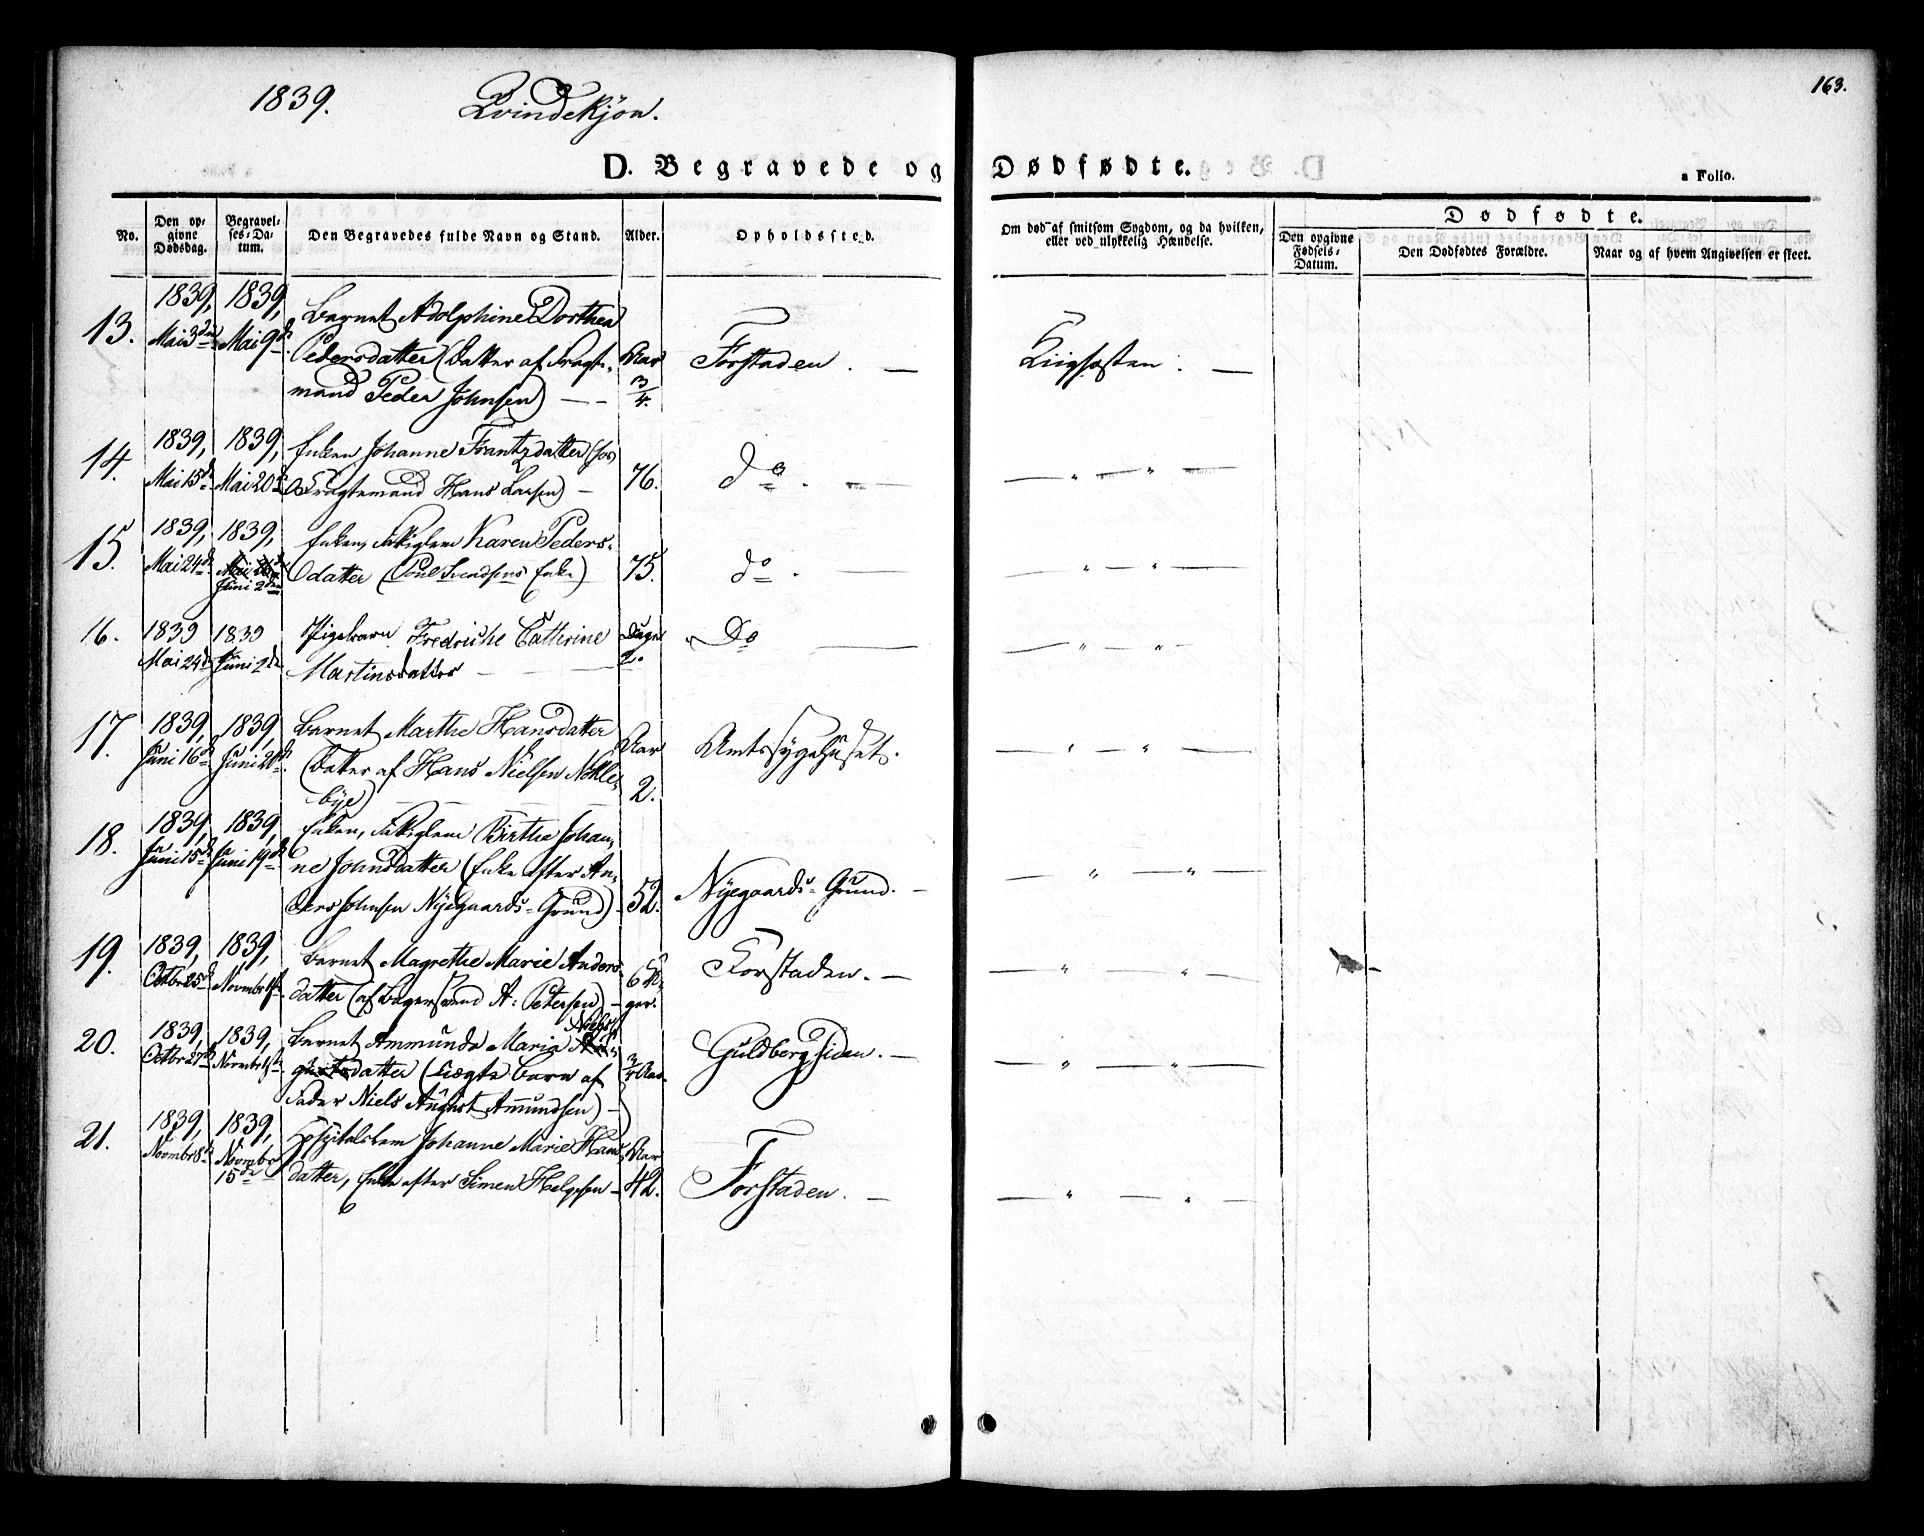 163.
1839. Qvindekjön.
D. Begravede og Dødfødte.
a Folio.
No. Den opgivne Dødsdag. Begravelses-Datum. Den Begravedes fulde Navn og Stand. Alder. Opholdssted. Om død af smitsom Sygdom, og da hvilken, eller ved ulykkelig Hændelse. Dødfødte.
Den opgivne Fødsels-Datum. Den Dødfødtes Forældre. Naar og af hvem Angivelsen er skeet.
13. 1839, Mai 3die 1839, Mai 9de Barnet Adolphine Dorthea
Pedersdatter (Datter af Fragt- Aar Forstaden. — Kiighosten. —
mand Peder Johnsen) — 3/4.
14. 1839, Mai 15de 1839, Mai 20de Enken Johanne Frantzdatter (for
Fragtemand Hans Larsen) — 76. do. —
15. 1839, Mai 24de 1839, Juni 2den Enken, Karen Peders-
datter (Poul Svendsens Enke) 75. do. —
16. 1839 Mai 24de 1839 Juni 2de Pigebarn Fredriche Cathrine Dage Do —
Martinsdatter — 2.
17. 1839, Juni 16de 1839, Juni 20de. Barnet Marthe Hansdatter Aar Amtssygehuset.
(Datter af Hans Nielsen Nøkle-
bye) 2.
18. 1839, Juni 15de 1839, Juni 19de Enken, Birthe Johan-
ne Johnsdatter (Enke efter An-
ders Johnsen Nyegaards-Grund) 52. Nyegaards-Grund. —
19. 1839, Octbr 25de 1839, Novmbr 1ste Barnet Magrethe Marie Anders-
datter (af Bagersvend A: Petersen) — 6 U-
ger. Forstaden. —
20. 1839, Octbr 27de 1839, Novmbr 1ste Barnet Ammunda Maria Niels-
datter (Ægte Barn af 3/4 Aar. Guldbergsiden. —
Fader Niels August Amundsen) —
21. 1839, Novmbr 8de 1839, Novmbr 15de Hospitalslem Johanne Marie Hans- Aar
datter, Enke efter Simen Helgesen — 42. Forstaden. —